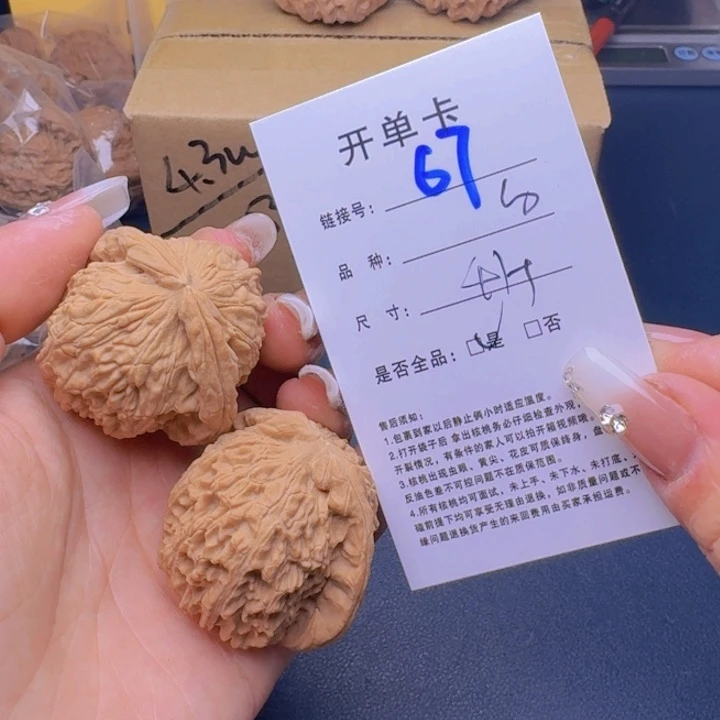 4.3w
开单卡
链接号: 67
品 种:
尺 寸:
是否全品: □是 □否
售后须知:
1.包裹到家以后静止俩小时适应温度。
2.打开袋子后 拿出核桃务必仔细检查外观,
开裂情况, 有条件的家人可以拍开箱视频哦。
3.核桃出现虫眼、黄尖、花皮可质保终身, 盘
反油色差不可控问题不在质保范围。
4.所有核桃均可面试, 未上手、未下水、未打底、
磕前提下均可享受无理由退换, 如非质量问题或不
缘问题退换货产生的来回费用由买家承担运费。